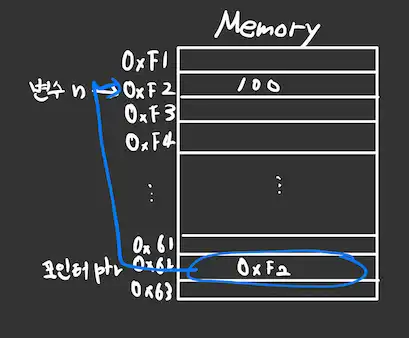 Memory
0xF1
변수 n → 0xF2 100
0xF3
0xF4
⋮ ⋮
0x61
포인터 ptr 0x62 0xF2
0x63